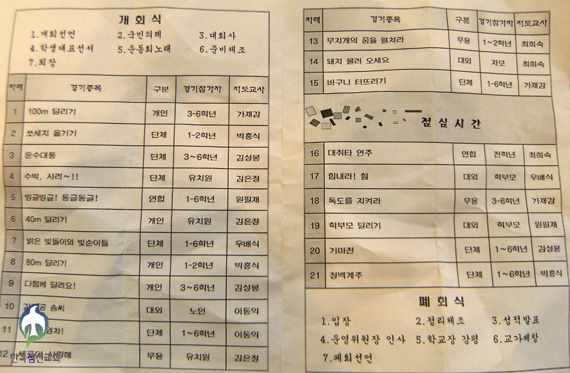 개 회 식
1.개회선언 2.국민의례 3.대회사
4.학생대표선서 5.운동회노래 6.준비체조
7.퇴장
차례 경기종목 구분 경기참가자 지도교사
1 100m 달리기 개인 3-6학년 가재감
2 쏘세지 옮기기 단체 1-2학년 박홍식
3 운수대통 단체 3~6학년 김성봉
4 수박, 사려~!! 단체 유치원 김은정
5 빙글빙글! 둥글둥글! 연합 1-6학년 원필재
6 40m 달리기 개인 유치원 김은정
7 밝은 빛돌이와 빛순이들 단체 1-6학년 우배식
8 80m 달리기 개인 1-2학년 박홍식
9 다함께 달려요! 개인 3~6학년 김성봉
10 솜씨 대외 노인 이동익
11 단체 1-6학년 이동익
12 무용 유치원 김은정
차례 경기종목 구분 경기참가자 지도교사
13 무지개의 꿈을 펼쳐라 무용 1~2학년 최희숙
14 돼지 몰러 오세요 대외 자모 최희숙
15 바구니 터뜨리기 단체 1-6학년 가재감
점 심 시 간
16 대취타 연주 연합 전학년 최희숙
17 힘내라! 힘 대외 학부모 우배식
18 독도를 지켜라 무용 3-6학년 가재감
19 학부모 달리기 대외 학부모 원필재
20 기마전 단체 1~6학년 김성봉
21 청백계주 단체 1~6학년 박홍식
폐 회 식
1.입장 2.정리체조 3.성적발표
4.운영위원장 인사 5.학교장 강평 6.교가제창
7.폐회선언